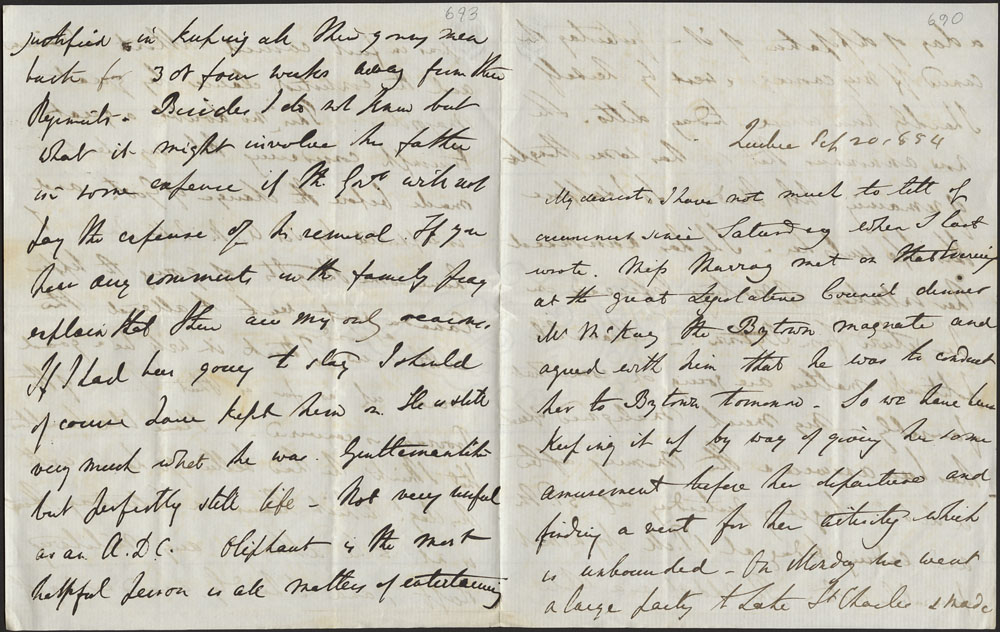 693
justified in keeping all these young men
back for 3 or four weeks away from their
Regiments. Besides I do not know but
what it might involve his father
in some expense if the Govt will not
pay the expense of his removal. If you
hear any comments in the family pray
explain that these are my only reasons.
If I had been going to stay I should
of course have kept him on. He is still
very much what he was. Gentlemanlike
but perfectly still life - Not very useful
as an A.D.C. Oliphant is the most
helpful person in all matters of entertaining
690
Quebec Feb 20. 1854
My dearest, I have not much to tell of
since Saturday when I last
wrote. Miss Murray met on that Evening
at the great Legislative Council dinner
Mr McKay the Bytown magnate and
agreed with him that he was to conduct
her to Bytown tomorrow - So we have been
keeping it up by way of giving her some
amusement before her departure and
finding a vent for her activity which
is unbounded - On Monday we went
a large party to Lake St Charles & made